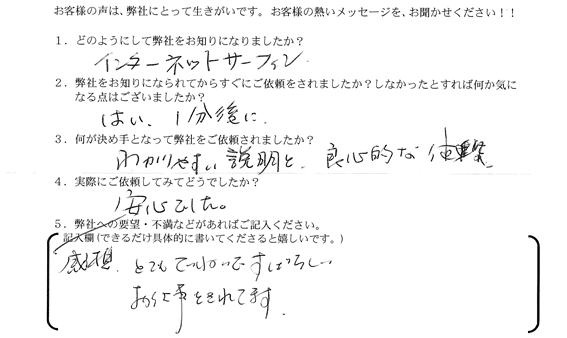 お客様の声は、弊社にとって生きがいです。お客様の熱いメッセージを、お聞かせください！！
1．どのようにして弊社をお知りになりましたか？
インターネットサーフィン
2．弊社をお知りになられてからすぐにご依頼をされましたか？しなかったとすれば何か気に
なる点はございましたか？
はい、1分後に.
3．何が決め手となって弊社をご依頼されましたか？
わかりやすい説明と、良心的な
4．実際にご依頼してみてどうでしたか？
安心でした。
5．弊社への要望・不満などがあればご記入ください。
記入欄(できるだけ具体的に書いてくださると嬉しいです。)
感想、とても ですばらしい
お仕事をされてます.